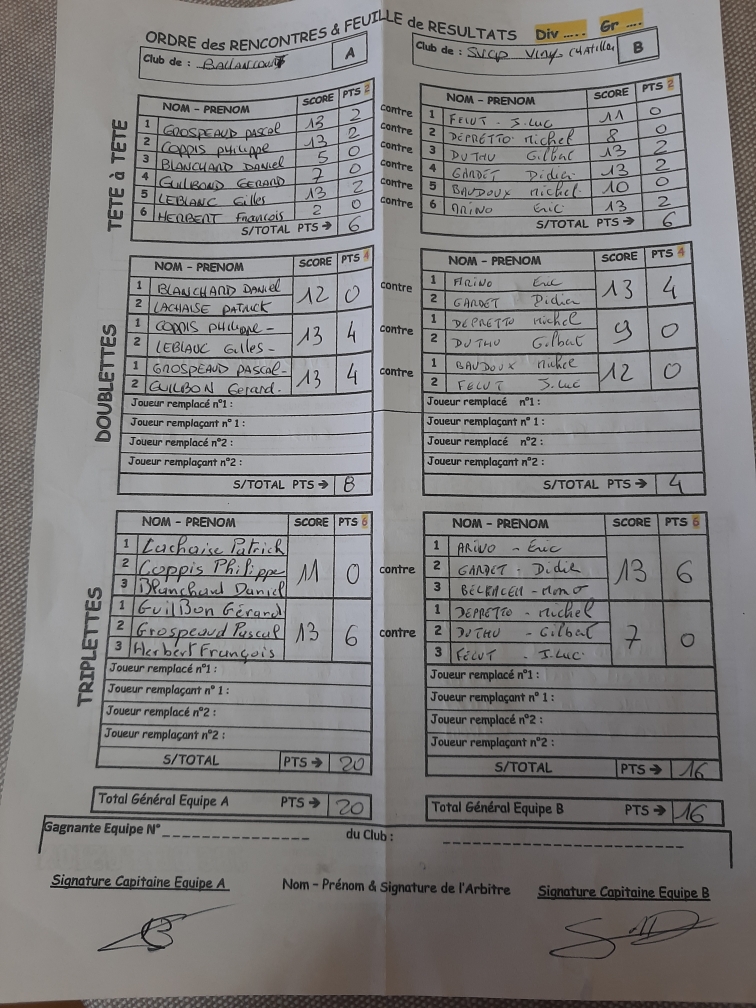 ORDRE des RENCONTRES & FEUILLE de RESULTATS Div ..... Gr ....
Club de : BALLANCOURT A
Club de : VIRY CHATILLON B
TETE à TETE
NOM - PRENOM SCORE PTS 2
1 GROSPEAUD PASCAL 13 2
2 COPPIS PHILIPPE 13 2
3 BLANCHARD DANIEL 5 0
4 GUILBOND GERARD 7 0
5 LEBLANC Gilles 13 2
6 HERBERT François 2 0
S/TOTAL PTS → 6
contre
contre
contre
contre
contre
contre
NOM - PRENOM SCORE PTS 2
1 FELUT - J.LUC 11 0
2 DEPRETTO Michel 8 0
3 DUTHU Gilbat 13 2
4 GARDET Didier 13 2
5 BAUDOUX Michel 10 0
6 ARINO Eric 13 2
S/TOTAL PTS → 6
DOUBLETTES
NOM - PRENOM SCORE PTS 4
1 BLANCHARD DANIEL 12 0
2 LACHAISE PATRICK
1 COPPIS PHILIPPE - 13 4
2 LEBLANC Gilles -
1 GROSPEAUD PASCAL - 13 4
2 GUILBON Gerard.
Joueur remplacé n°1 :
Joueur remplaçant n° 1 :
Joueur remplacé n°2 :
Joueur remplaçant n°2 :
S/TOTAL PTS → 8
contre
contre
contre
NOM - PRENOM SCORE PTS 4
1 ARINO Eric 13 4
2 GARDET Didier
1 DEPRETTO Michel 9 0
2 DUTHU Gilbat
1 BAUDOUX Michel 12 0
2 FELUT J.LUC
Joueur remplacé n°1 :
Joueur remplaçant n° 1 :
Joueur remplacé n°2 :
Joueur remplaçant n°2 :
S/TOTAL PTS → 4
TRIPLETTES
NOM - PRENOM SCORE PTS 6
1 Lachaise Patrick 11 0
2 Coppis Philippe
3 Blanchard Daniel
1 GuilBon Gérard 13 6
2 Grospeaud Pascal
3 Herbert François
Joueur remplacé n°1 :
Joueur remplaçant n° 1 :
Joueur remplacé n°2 :
Joueur remplaçant n°2 :
S/TOTAL PTS → 20
contre
contre
NOM - PRENOM SCORE PTS 6
1 ARINO - Eric 13 6
2 GARDET - Didier
3
1 DEPRETTO - Michel 7 0
2 DUTHU - Gilbat
3 FELUT - J.LUC
Joueur remplacé n°1 :
Joueur remplaçant n° 1 :
Joueur remplacé n°2 :
Joueur remplaçant n°2 :
S/TOTAL PTS → 16
Total Général Equipe A PTS → 20
Total Général Equipe B PTS → 16
Gagnante Equipe N° _______________ du Club : _______________
Signature Capitaine Equipe A
Nom - Prénom & Signature de l'Arbitre
Signature Capitaine Equipe B